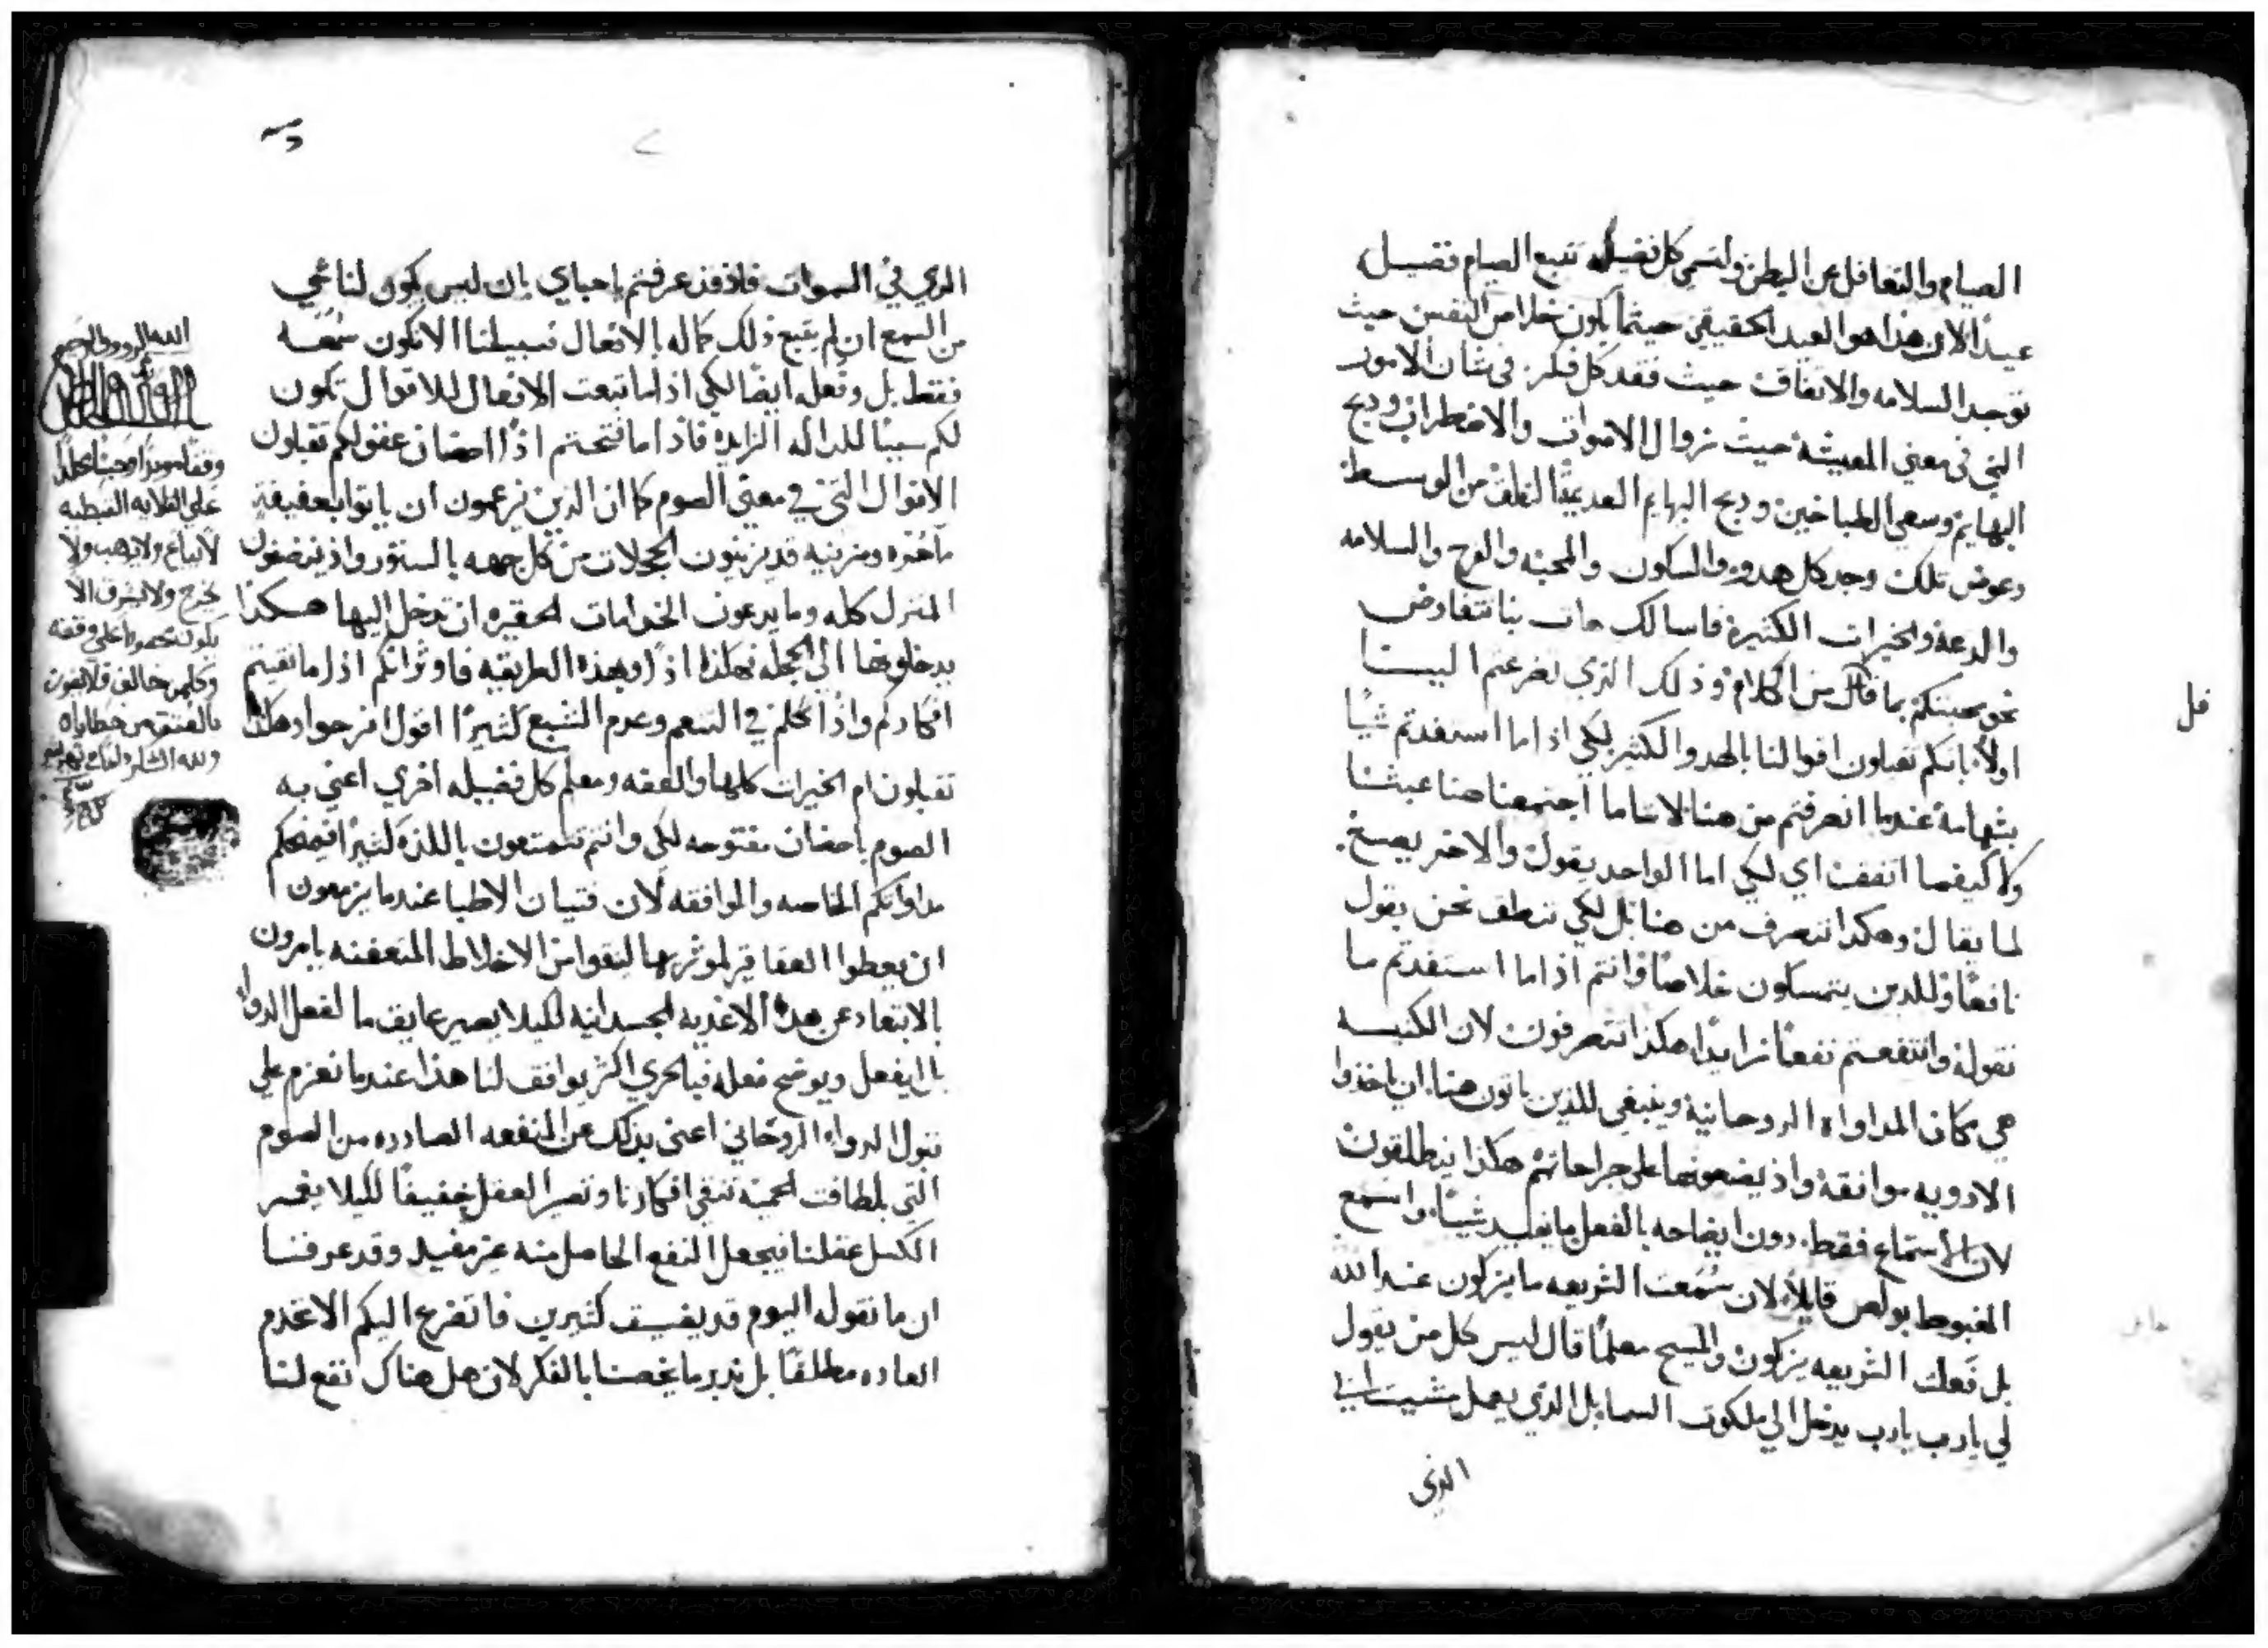 الصيام والتغافل عن البطن وانتمى كل فضيله تتبع الصيام فضيله
عيدًا لان هذا هو العيد الحقيقي حيثما يكون خلاص النفس حيث
توجد السلامه والاتفاق حيث فقد كل فكر في شان الامور
التي في معني المعيشة حيث زوال الاصوات والاضطراب وذبح
البهايم وسعي الطباخين وذبح البهايم العديمة النطق من الوسط
وعوض تلك وجد كل هدوء والسكون والمحبه والفرح والسلامه
والدعة والخيرات الكثيرة فاسالك هات بنا نتفاوض
نحو محبتكم بما قال من الكلام وذلك الذي نضرعه الينا
اولاً بانكم تقبلون اقوالنا بالهدو الكثير لكي اذا ما استفدتم شيًا
بشهامة عندما انصرفتم من هنا لاننا ما اجتمعنا هنا عبثا
ولا كيفما اتفقت اي لكي اما الواحد يقول والاخر يصيخ
لما يقال وهكذا ننصرف من هنا بل لكي ننطق نحن بقول
نافعًا وللدين يتمسكون خلاصًا وانتم اذا ما استفدتم ما
نقوله وانتفعتم نفعًا زايدًا هكذا تنصرفون لان الكنيسه
هي مكان المداواه الروحانية وينبغي للذين ياتون هنا ان ياخذوا
الادويه موافقة واذ يضعونها على جراحاتهم هكذا ينطلقون
لان الاستماع فقط دون ايضاحه بالفعل ما يفيد شيًا واسمع
المغبوط بولص قايلاً لان سُمَعت الشريعه ما يزكون عند الله
بل فَعَلت الشريعه يزكون والمسيح معلمًا قال ليس كل من يقول
لي يارب يارب يدخل الي ملكوت السما بل الذي يعمل مشيت ابي
الذي
الذي في السموات فاذ قد عرفتم ياحباي بان ليس يكون لنا شي
من السمع ان لم يتبع ذلك كماله بالافعال فسبيلنا الا نكون سُمعه
فقط بل وفعله ايضًا لكي اذا ما تبعت الافعال للاقوال تكون
لكم سببًا للداله الزايدة فاذا ما فتحتم اذًا احضان عقولكم تقبلون
الاقوال التي في معني الصوم كما ان الذين يزعمون ان ياتوا بعفيفة
ومزينه قد يزينون الحجلات من كل جهه بالستور واذ ينضفون
المنزل كله وما يدعون الخدامات الحقيره ان تدخل اليها هكذا
يدخلونها الي الحجله فهكذا اذًا وبهذه الطريقه فاوثر انكم اذا ما نقيتم
افكاركم واذا في التنعم وعدم الشبع كثيرًا اقول افرحوا وهكذا
تقبلون ام الخيرات كلها والعفه ومعلم كل فضيله اخري اعني به
الصوم باحضان مفتوحه لكي وانتم تتمتعون باللذة كثيرًا فيمنحكم
مداواتكم الخاصه والموافقه لان فتيان الاطبا عندما يزمعون
ان يعطوا العقاقير لموثريها لينقوا من الاخلاط المتعفنه يامرون
بالابتعاد عن هذه الاغديه الجسدانيه لكيلا يصير عايق ما لفعل الدوا
بل يفعل ويوضح فعله فبالحري اكثر يوافق لنا هذا عندما نعزم علي
تنول الدواء الروحاني اعني بذلك عن المنفعه الصادره من الصوم
التي بلطافت الحمية تنقي افكارنا وتصير العقل خفيفًا لكيلا يغمر
الكسل عقلنا فيجعل النفع الحاصل منه غير مفيد وقد عرفنا
ان ما نقوله اليوم قد يضيق كثيرين فانضرع اليكم الا نخدم
العاده مطلقًا بل ندبر ما يخصنا بالفكر لان هل هناك نفع لنا
الله الرووف الرحيم
وقفًا موبدًا وحبسًا مخلدًا
علي القلايه القبطيه
لا يباع ولا يوهب ولا
يخرج ولا يصرف الا
يكون محمولا على وقفه
وكلمن خالف فلا يكون
ولله الشكر دايما